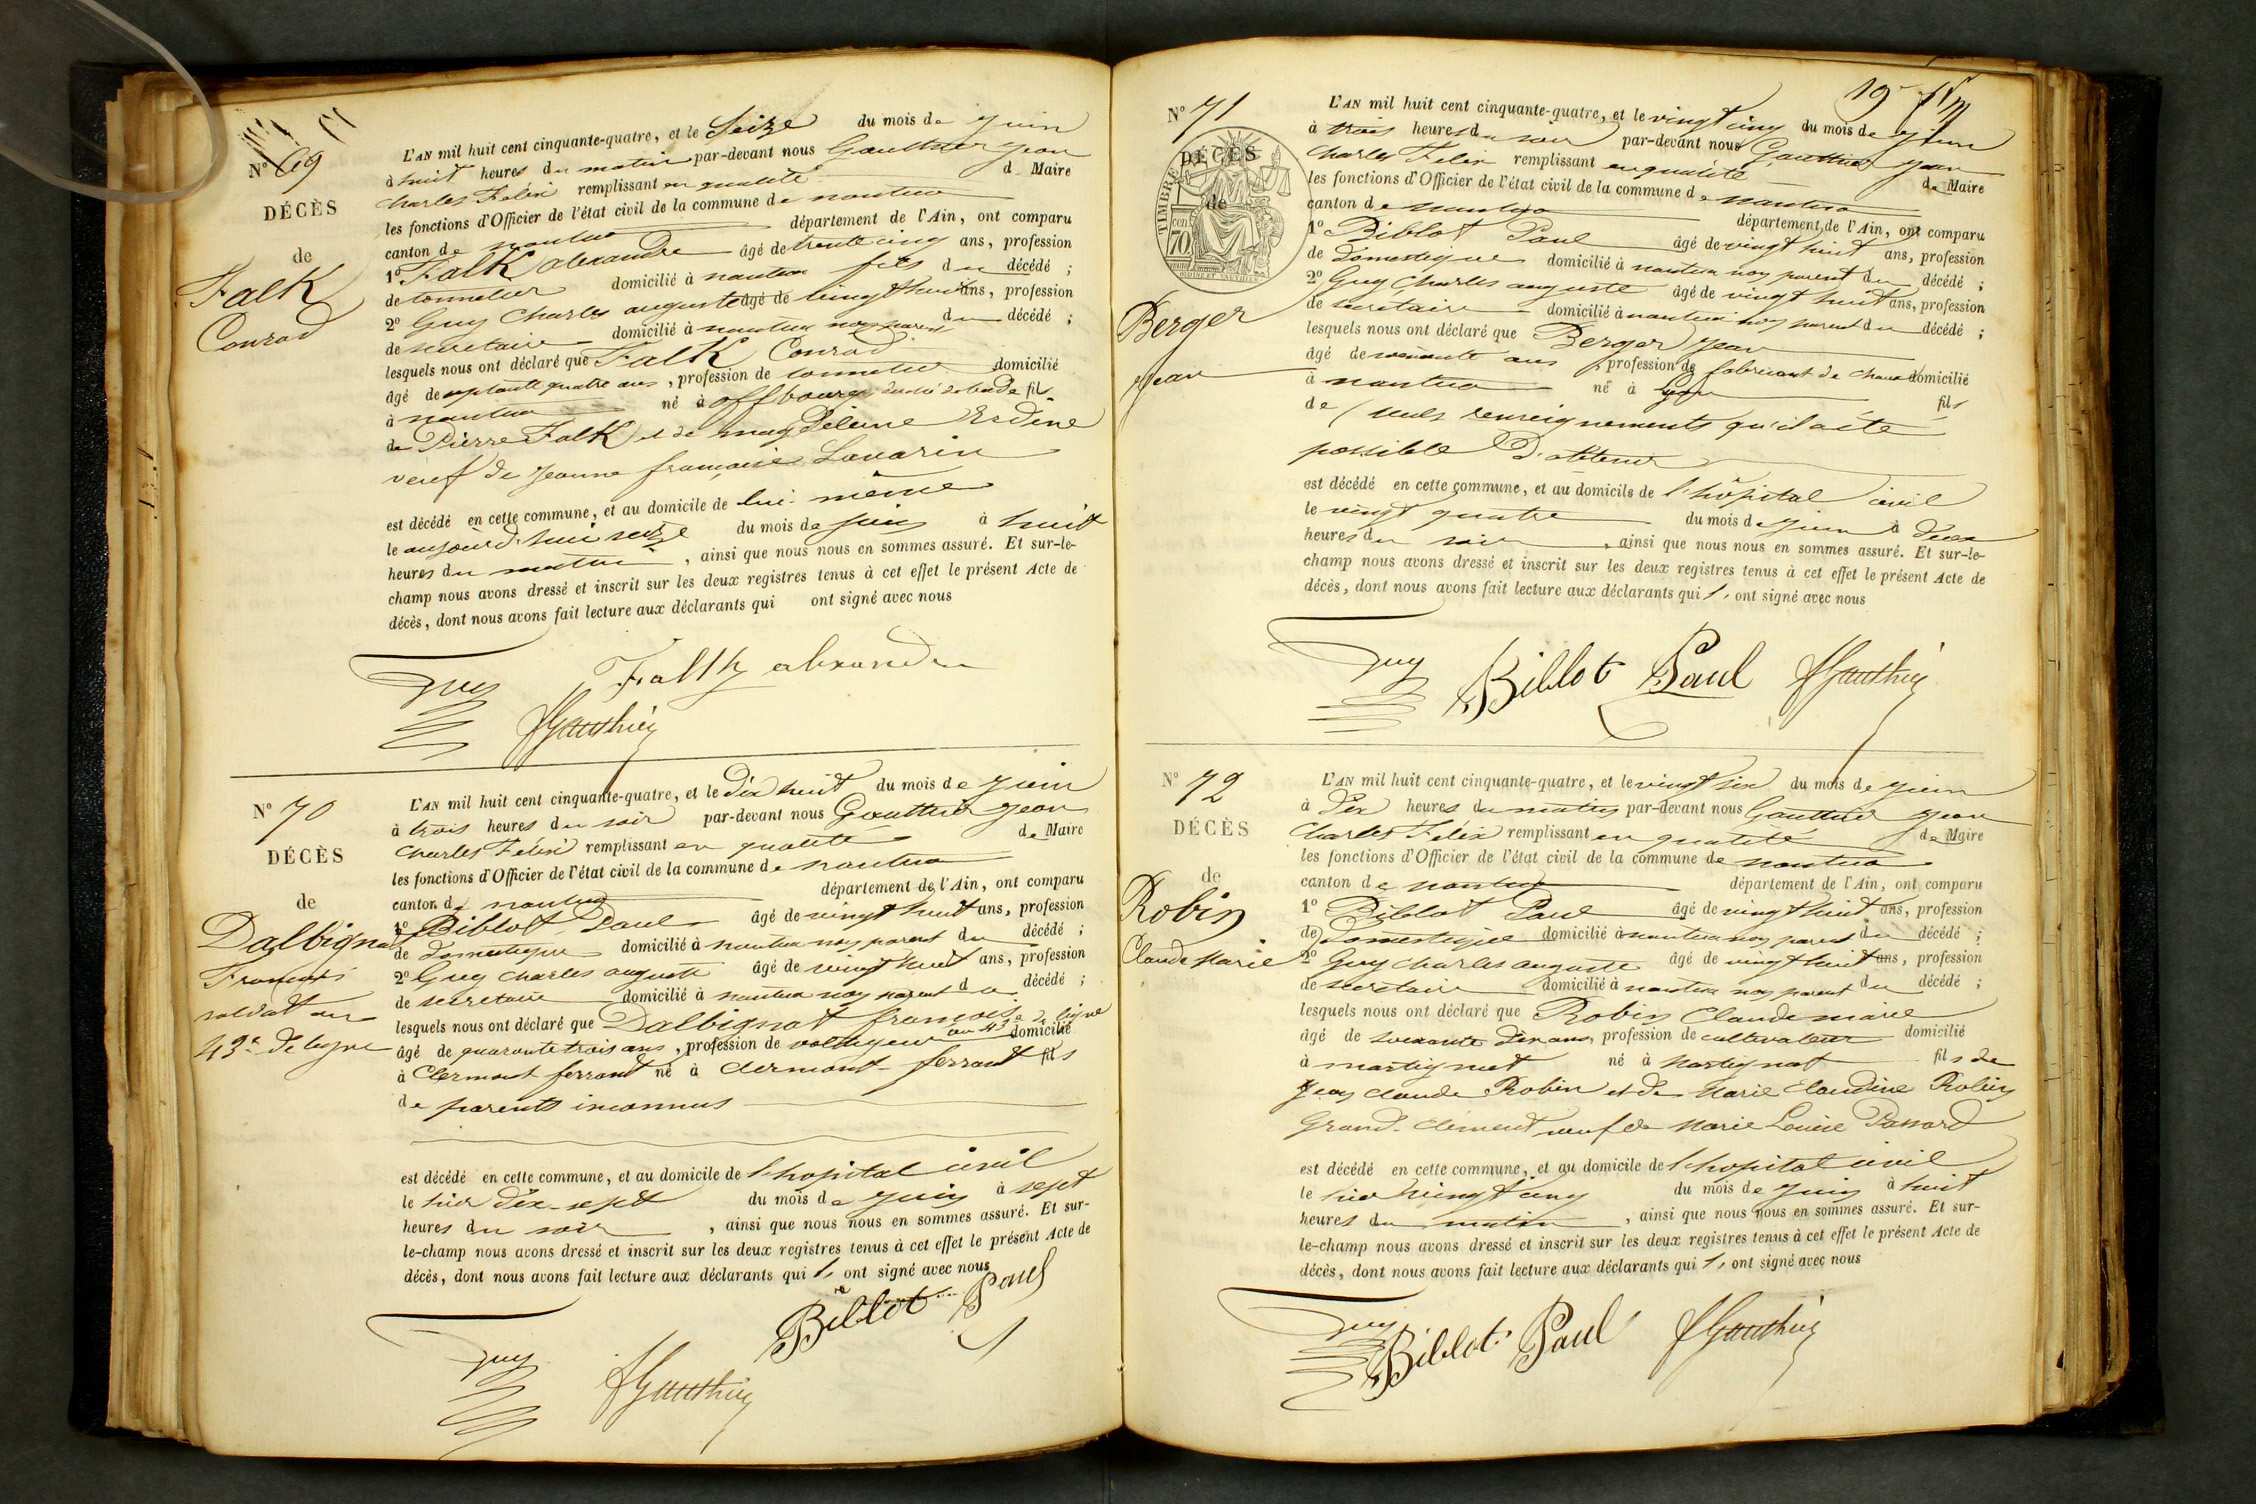 N° 69
DÉCÈS
de
Falk
Conrad
L'AN mil huit cent cinquante-quatre, et le Seize du mois de juin
à huit heures du matin par-devant nous Gauthier Jean
Charles Félix remplissant en qualité de Maire
les fonctions d'Officier de l'état civil de la commune de nantua
canton de nantua département de l'Ain, ont comparu
1° Falk alexandre âgé de trente cinq ans, profession
de tonnelier domicilié à nantua fils du décédé ;
2° Guy Charles auguste âgé de vingt huit ans, profession
de secretaire domicilié à nantua non parent du décédé ;
lesquels nous ont déclaré que Falk Conrad
âgé de septante quatre ans, profession de tonnelier domicilié
à nantua né à offbourg duché de bade fils
de Pierre Falk et de magdeleine Erdine
veuf de Jeanne françoise Lavarin
est décédé en cette commune, et au domicile de lui-même
le aujourd'hui seize du mois de juin à huit
heures du matin, ainsi que nous nous en sommes assuré. Et sur-le-
champ nous avons dressé et inscrit sur les deux registres tenus à cet effet le présent Acte de
décès, dont nous avons fait lecture aux déclarants qui ont signé avec nous
Guy Falk alexandre
Gauthier
N° 70
DÉCÈS
de
Dalbignat
François
soldat au
43e de ligne
L'AN mil huit cent cinquante-quatre, et le dix huit du mois de juin
à trois heures du soir par-devant nous Gauthier Jean
Charles Félix remplissant en qualité de Maire
les fonctions d'Officier de l'état civil de la commune de nantua
canton de nantua département de l'Ain, ont comparu
1° Biblot Paul âgé de vingt huit ans, profession
de domestique domicilié à nantua non parent du décédé ;
2° Guy Charles auguste âgé de vingt huit ans, profession
de secretaire domicilié à nantua non parent du décédé ;
lesquels nous ont déclaré que Dalbignat françois
âgé de quarante trois ans, profession de voltigeur au 43e de ligne domicilié
à Clermont ferrant né à clermont-ferrant fils
de parents inconnus
est décédé en cette commune, et au domicile de l'hopital civil
le hier dix-sept du mois de juin à sept
heures du soir, ainsi que nous nous en sommes assuré. Et sur-
le-champ nous avons dressé et inscrit sur les deux registres tenus à cet effet le présent Acte de
décès, dont nous avons fait lecture aux déclarants qui ont signé avec nous
Biblot Paul
Guy Gauthier
19
N° 71
DÉCÈS
de
TIMBRE
70
Berger
Jean
L'AN mil huit cent cinquante-quatre, et le vingt cinq du mois de juin
à trois heures du soir par-devant nous Gauthier Jean
Charles Félix remplissant en qualité de Maire
les fonctions d'Officier de l'état civil de la commune de nantua
canton de nantua département de l'Ain, ont comparu
1° Biblot Paul âgé de vingt huit ans, profession
de domestique domicilié à nantua non parent du décédé ;
2° Guy Charles auguste âgé de vingt huit ans, profession
de secretaire domicilié à nantua non parent du décédé ;
lesquels nous ont déclaré que Berger Jean
âgé de soixante ans, profession de fabricant de domicilié
à nantua né à Lyon fils
de (seuls renseignements qu'il a été
possible d'obtenir
est décédé en cette commune, et au domicile de l'hôpital civil
le vingt quatre du mois de juin à deux
heures du soir, ainsi que nous nous en sommes assuré. Et sur-le-
champ nous avons dressé et inscrit sur les deux registres tenus à cet effet le présent Acte de
décès, dont nous avons fait lecture aux déclarants qui ont signé avec nous
Guy Biblot Paul Gauthier
N° 72
DÉCÈS
de
Robin
Claude Marie
L'AN mil huit cent cinquante-quatre, et le vingt six du mois de juin
à dix heures du matin par-devant nous Gauthier Jean
Charles Félix remplissant en qualité de Maire
les fonctions d'Officier de l'état civil de la commune de nantua
canton de nantua département de l'Ain, ont comparu
1° Biblot Paul âgé de vingt huit ans, profession
de domestique domicilié à nantua non parent du décédé ;
2° Guy Charles auguste âgé de vingt huit ans, profession
de secretaire domicilié à nantua non parent du décédé ;
lesquels nous ont déclaré que Robin Claude marie
âgé de soixante dix ans, profession de cultivateur domicilié
à martignat né à Martignat fils de
Jean claude Robin et de Marie Claudine Robin
Grand-Clément veuf de Marie Louise Passard
est décédé en cette commune, et au domicile de l'hopital civil
le hier vingt cinq du mois de juin à huit
heures du matin, ainsi que nous nous en sommes assuré. Et sur-
le-champ nous avons dressé et inscrit sur les deux registres tenus à cet effet le présent Acte de
décès, dont nous avons fait lecture aux déclarants qui ont signé avec nous
Guy Biblot Paul Gauthier